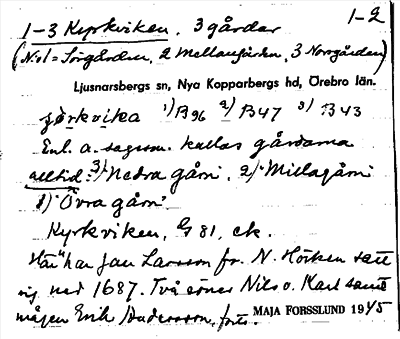 1-3 Kyrkviken, 3 gårdar 1-2
(N:o 1 = Sörgården, 2 Mellangården, 3 Norrgården)
Ljusnarsbergs sn, Nya Kopparbergs hd, Örebro län.
1) B96 2) B47 3) B43
Enl. a. sagesm. kallas gårdarna
alltid: 3) Nedra gårn, 2) Millagårn
1) Övra gårn.
Kyrkviken, G 81, ek.
"Här" har Jan Larsson fr. N. Hörken satt
sig ned 1687. Två söner Nils o. Karl samt
mågen Erik Andersson, forts.
MAJA FORSSLUND 1945